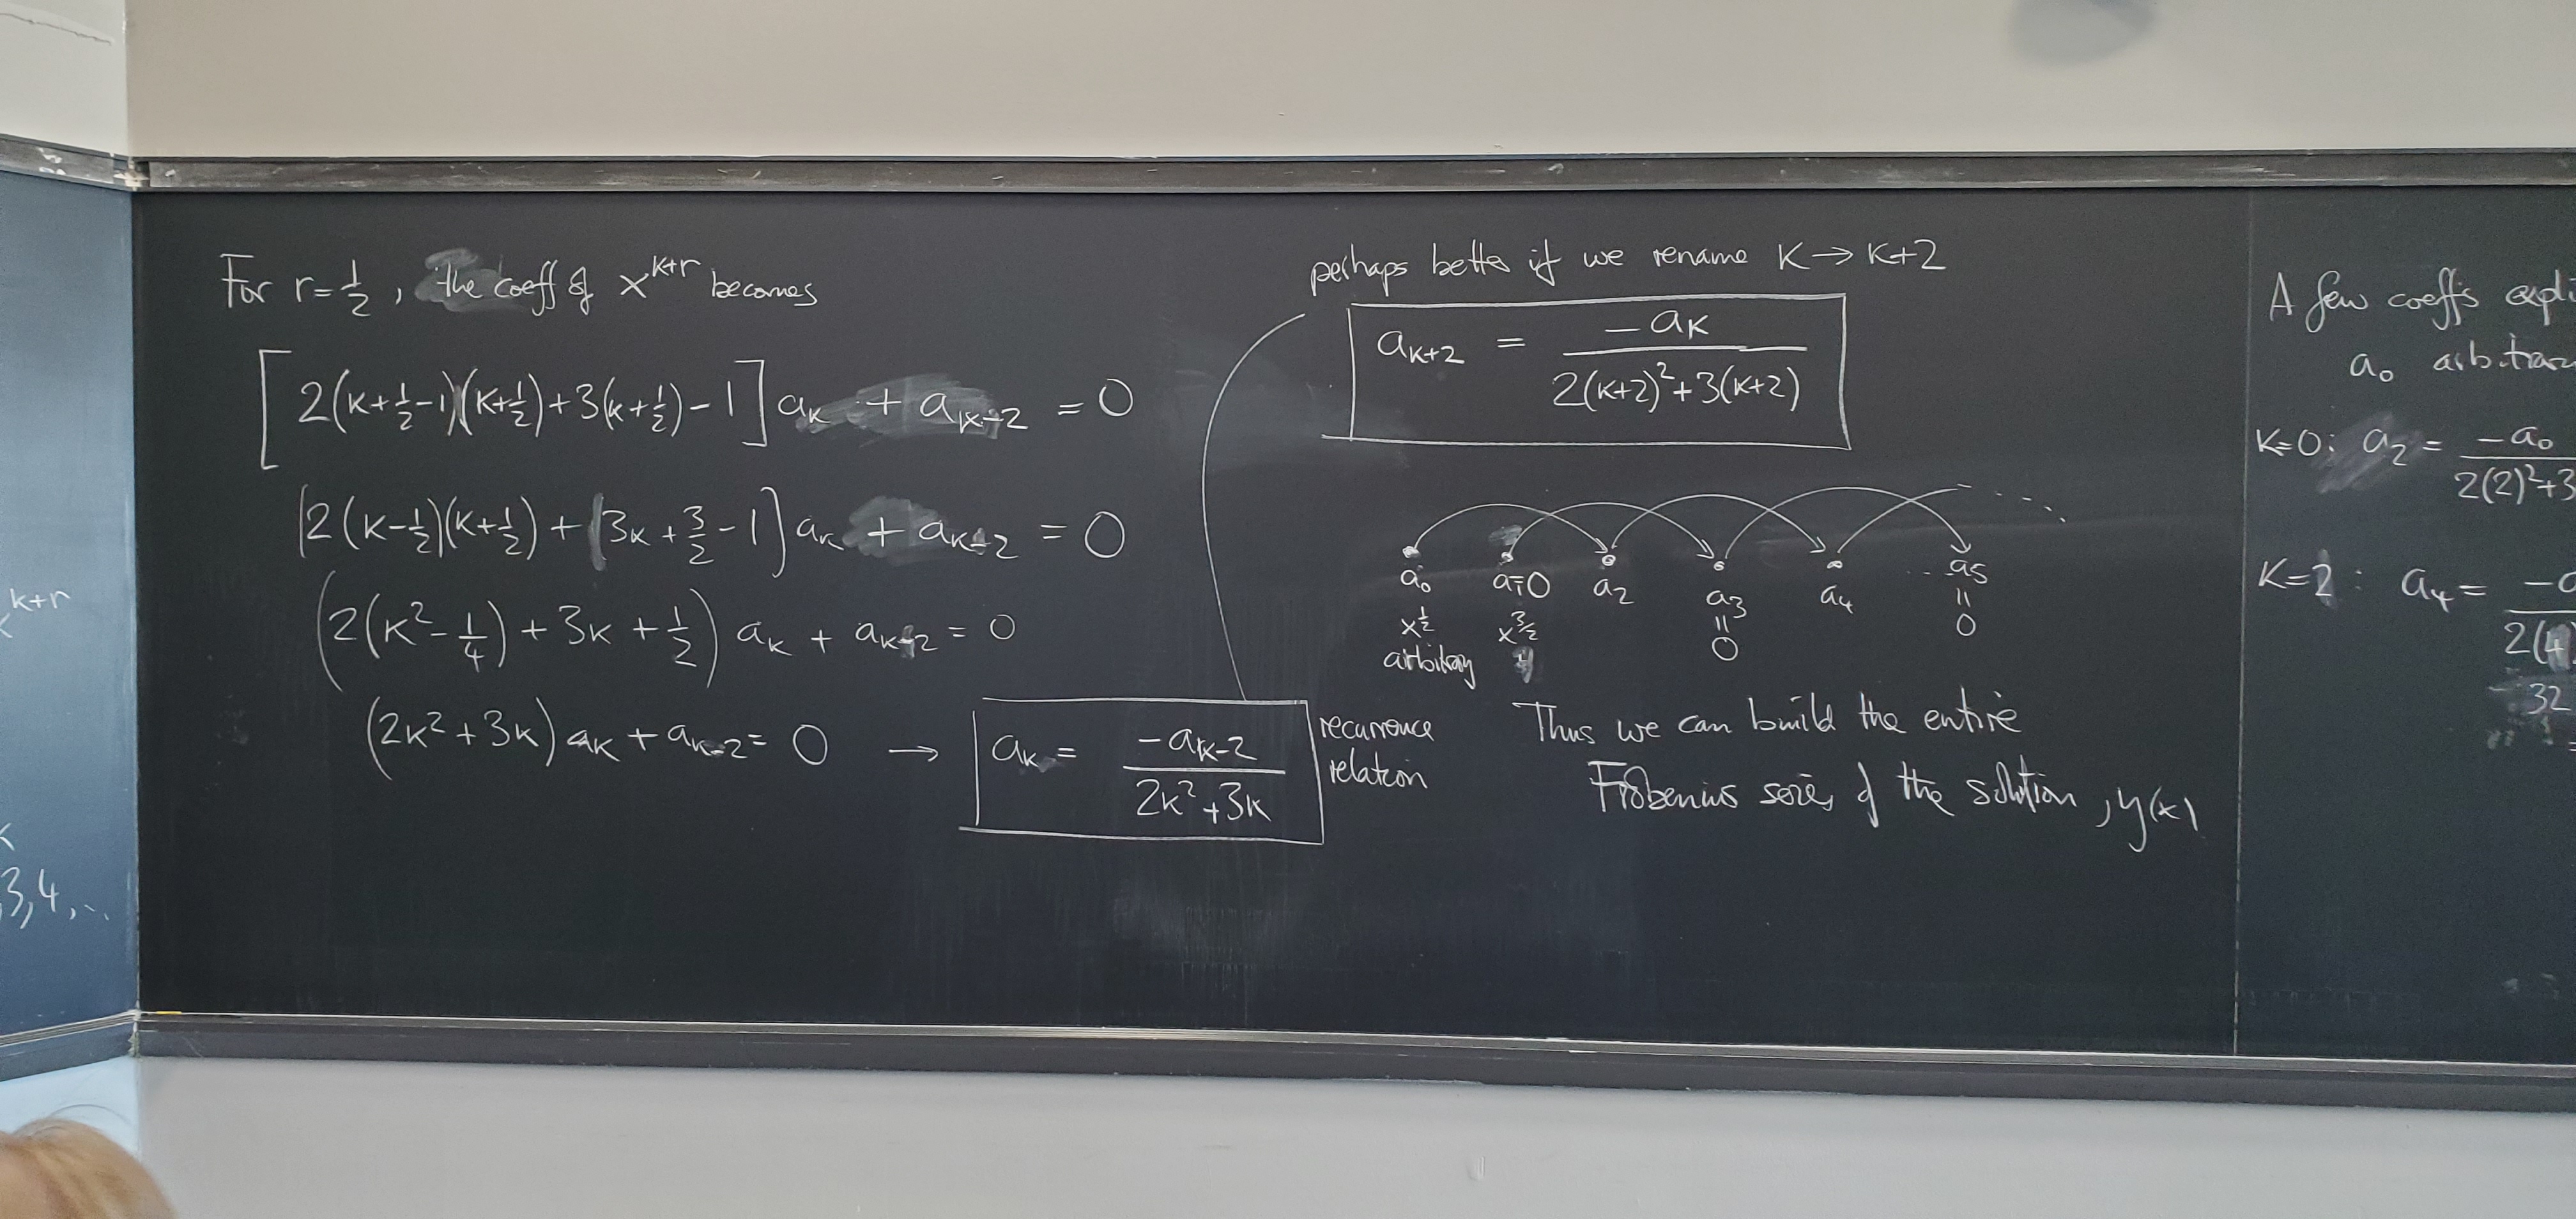 x^{k+r}
3,4,...
For r=1/2, the coeff of x^{k+r} becomes
[2(k+1/2-1)(k+1/2)+3(k+1/2)-1] a_k + a_{k-2} = 0
[2(k-1/2)(k+1/2) + [3k+3/2-1] a_k + a_{k-2} = 0
(2(k²-1/4)+3k+1/2) a_k + a_{k-2} = 0
(2k²+3k) a_k + a_{k-2} = 0 → a_k = -a_{k-2} / (2k²+3k)
recurrence
relation
perhaps better if we rename k → k+2
a_{k+2} = -a_k / (2(k+2)²+3(k+2))
a_0 a_1=0 a_2 a_3 a_4 ... a_5
x^{1/2} x^{3/2} || ||
arbitrary 0 0
Thus we can build the entire
Frobenius series of the solution, y(x)
A few coeffs
a_0
k=0: a_2 = -a_0 / 2(2)²+3
k=2: a_4 =
2(4
32